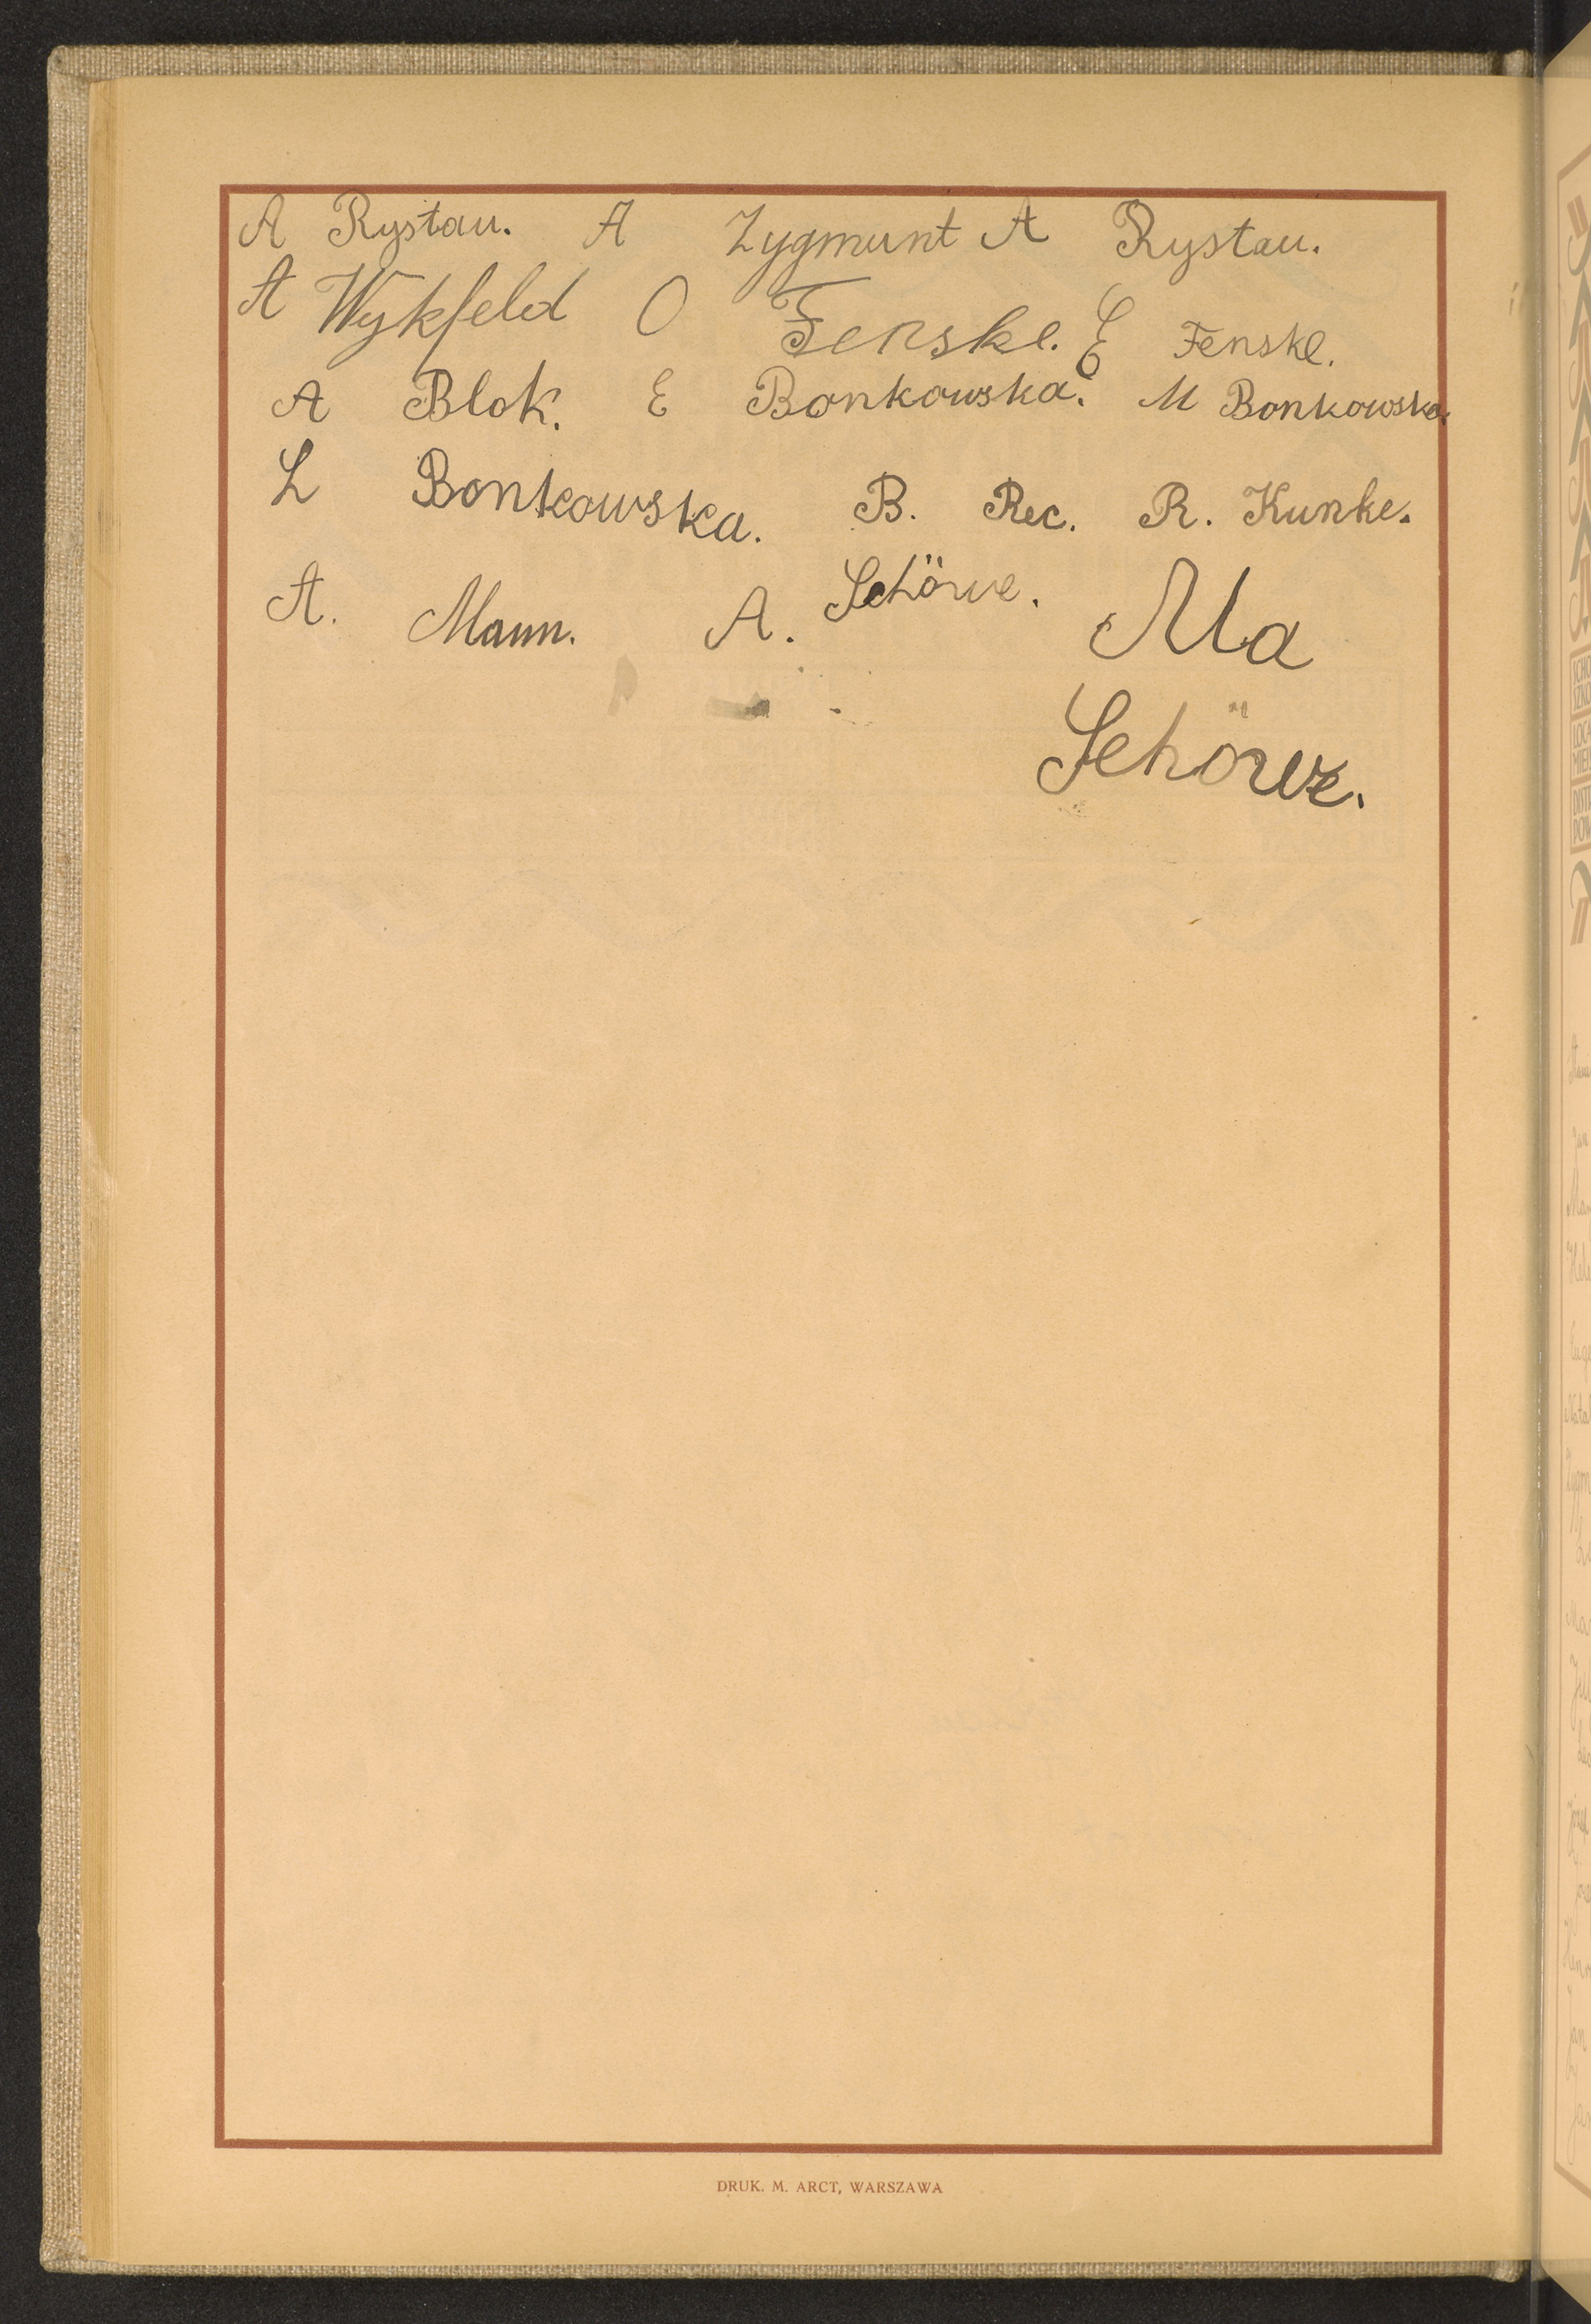 A Rystau. A Zygmunt A Rystau.
A Wykfeld O Fenske. E Fenske.
A Blok. E Bonkowska. M Bonkowska.
L Bonkowska. B. Rec. R. Kunke.
A. Mann. A. Schörve. Ma
Schörve.
DRUK. M. ARCT, WARSZAWA